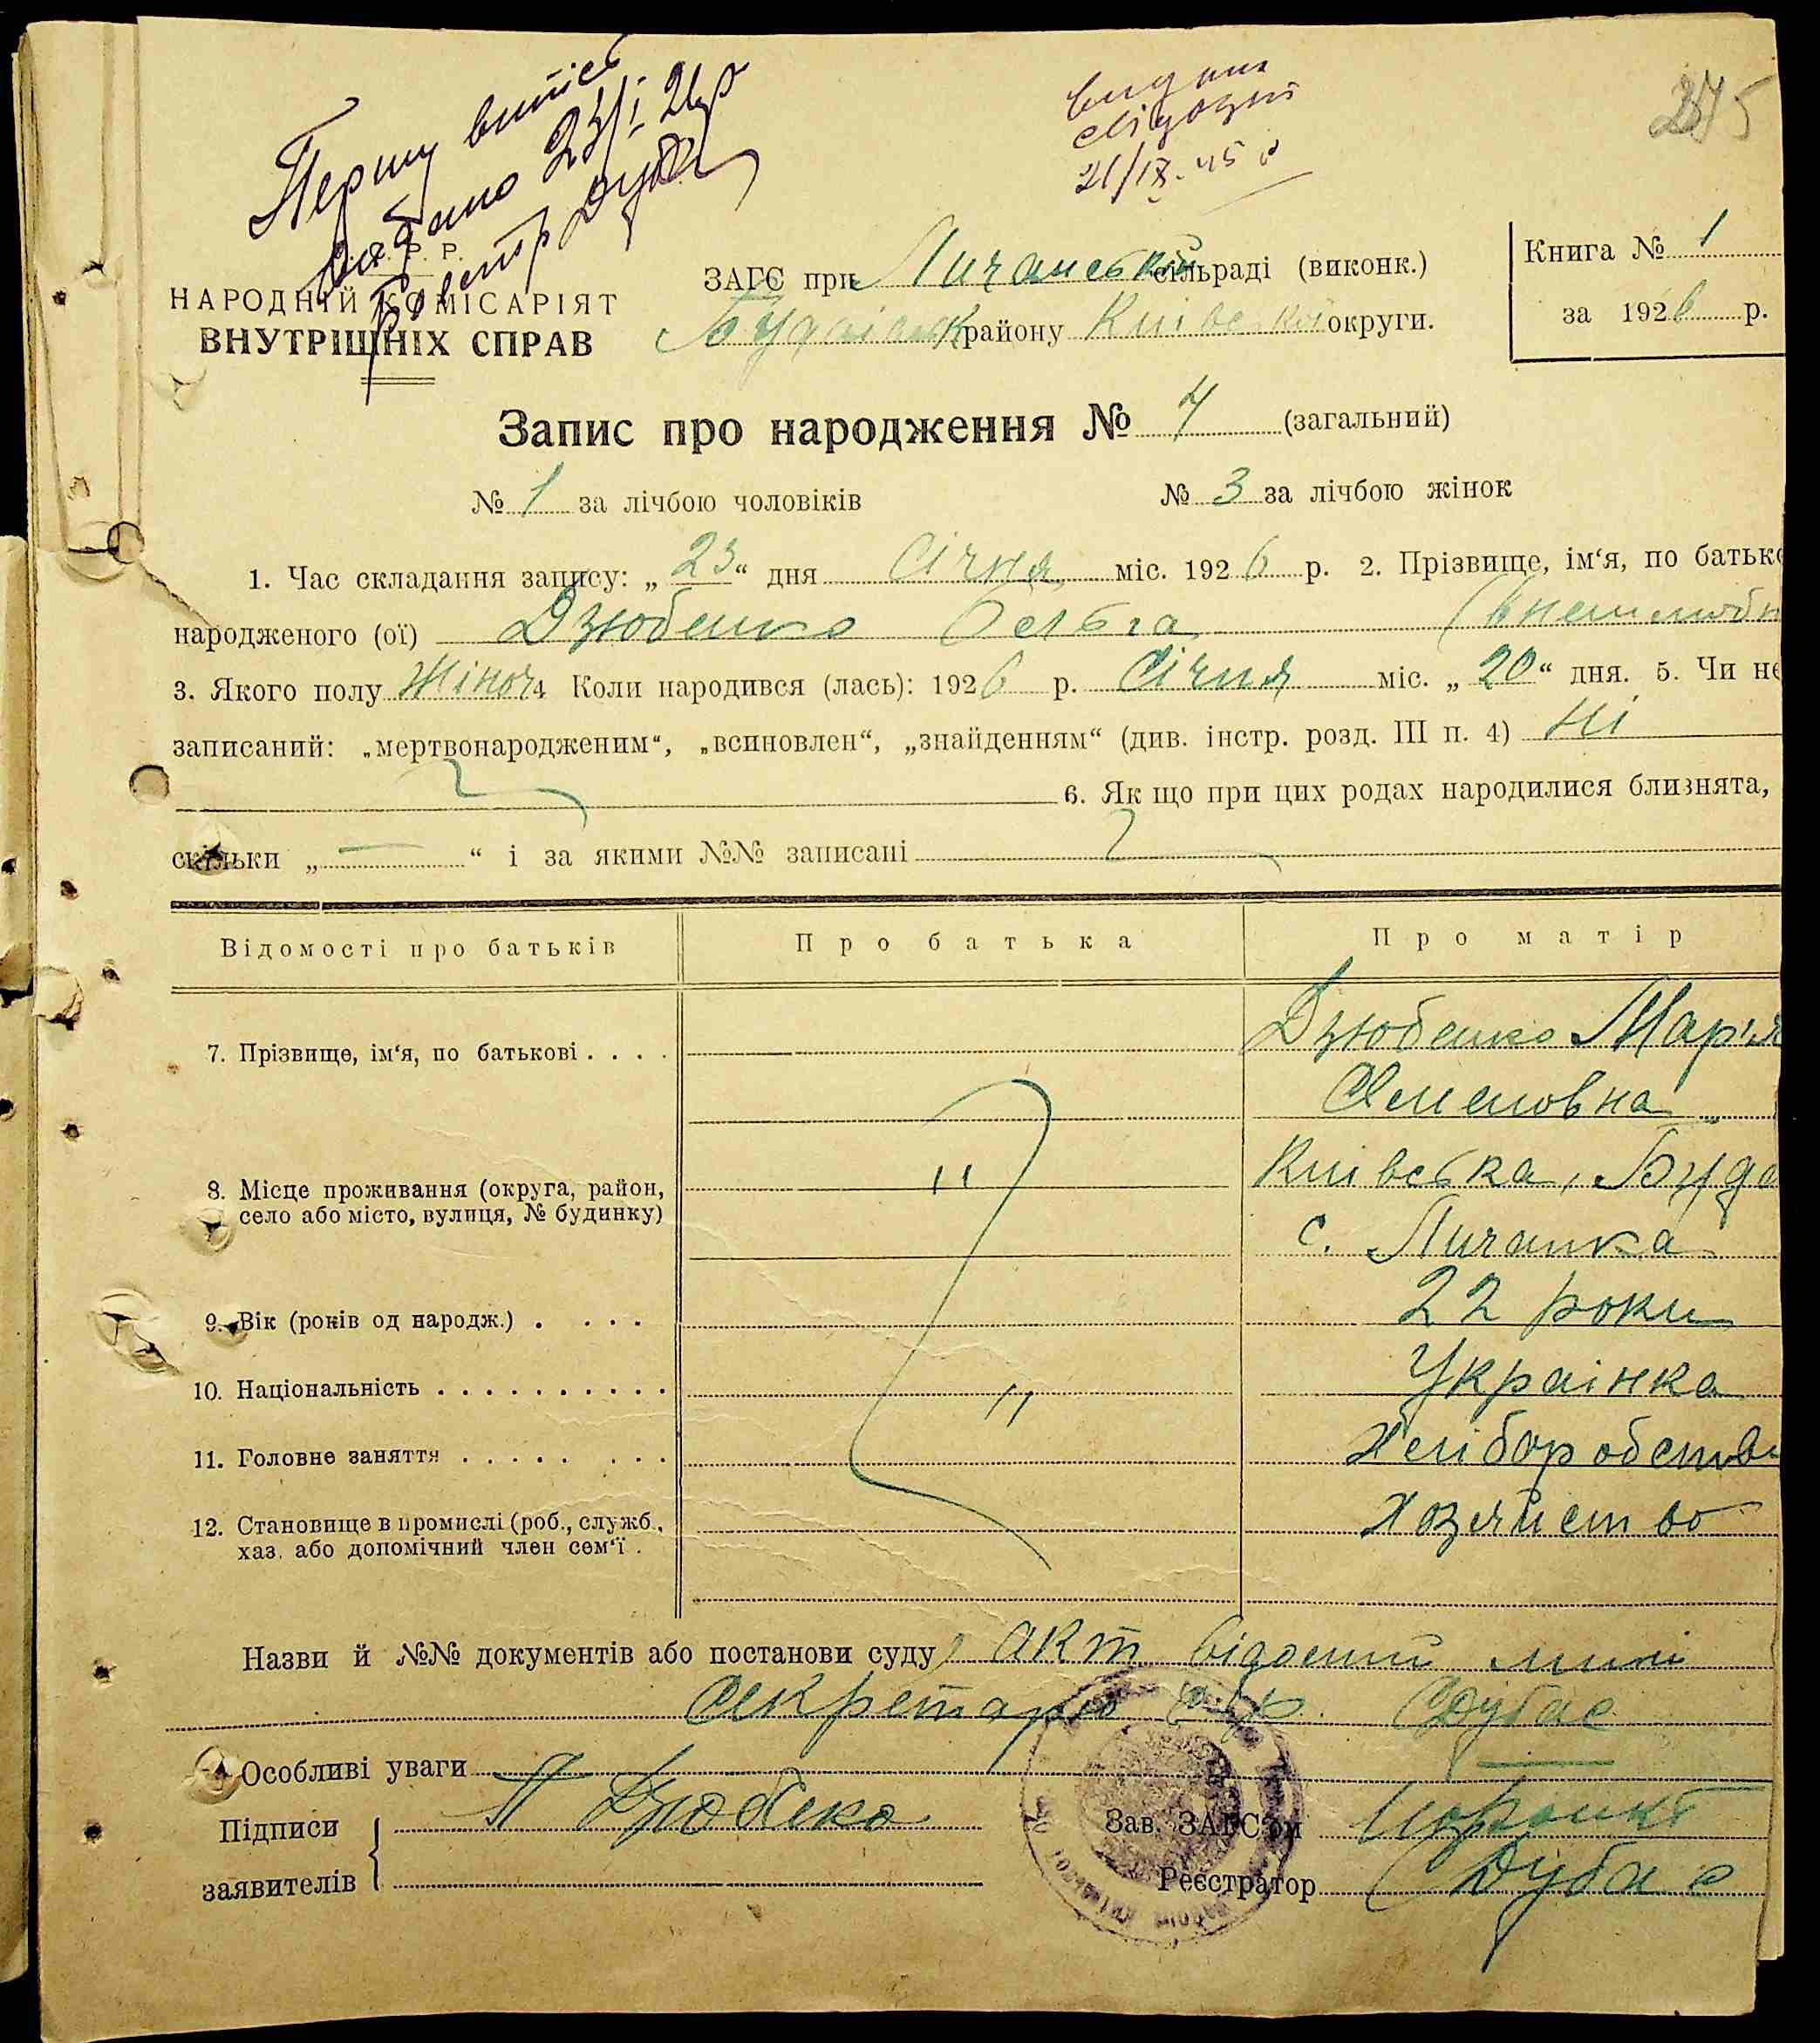 Першу випись
видано 23/I 26р
Реєстр Дубас
видана
свідоцтв
21/IX-45 р
275
Р. Р.
НАРОДНІЙ КОМІСАРІЯТ
ВНУТРІШНІХ СПРАВ
ЗАГС при Личанській сільраді (виконк.)
Будаівськ району Київської округи.
Книга № 1
за 1926 р.
Запис про народження № 4 (загальний)
№ 1 за лічбою чоловіків № 3 за лічбою жінок
1. Час складання запису: „23“ дня Січня міс. 1926 р. 2. Прізвище, ім‘я, по батько
народженого (ої) Дзюбенко Ольга
3. Якого полу Жіноч 4 Коли народився (лась): 1926 р. Січня міс. „20“ дня. 5. Чи не
записаний: „мертвонародженим“, „всиновлен“, „знайденням“ (див. інстр. розд. III п. 4) Ні
6. Як що при цих родах народилися близнята,
скільки „ — “ і за якими №№ записані
Відомості про батьків Про батька Про матір
7. Прізвище, ім‘я, по батькові . . . . Дзюбенко Мар'я
Семеновна
8. Місце проживання (округа, район, " Київська, Буда
село або місто, вулиця, № будинку) с. Личанка
9. Вік (років од народж.) . . . . 22 роки
10. Національність . . . . . . . . . . " Українка
11. Головне заняття . . . . . . . . Хліборобство
12. Становище в промислі (роб., служб., Хозяйство
хаз. або допомічний член сем‘ї .
Назви й №№ документів або постанови суду акт
Секретарю Дубас
Особливі уваги
Підписи
заявителів
Дзюбеко
Зав. ЗАГС‘ом
Реєстратор Дубас